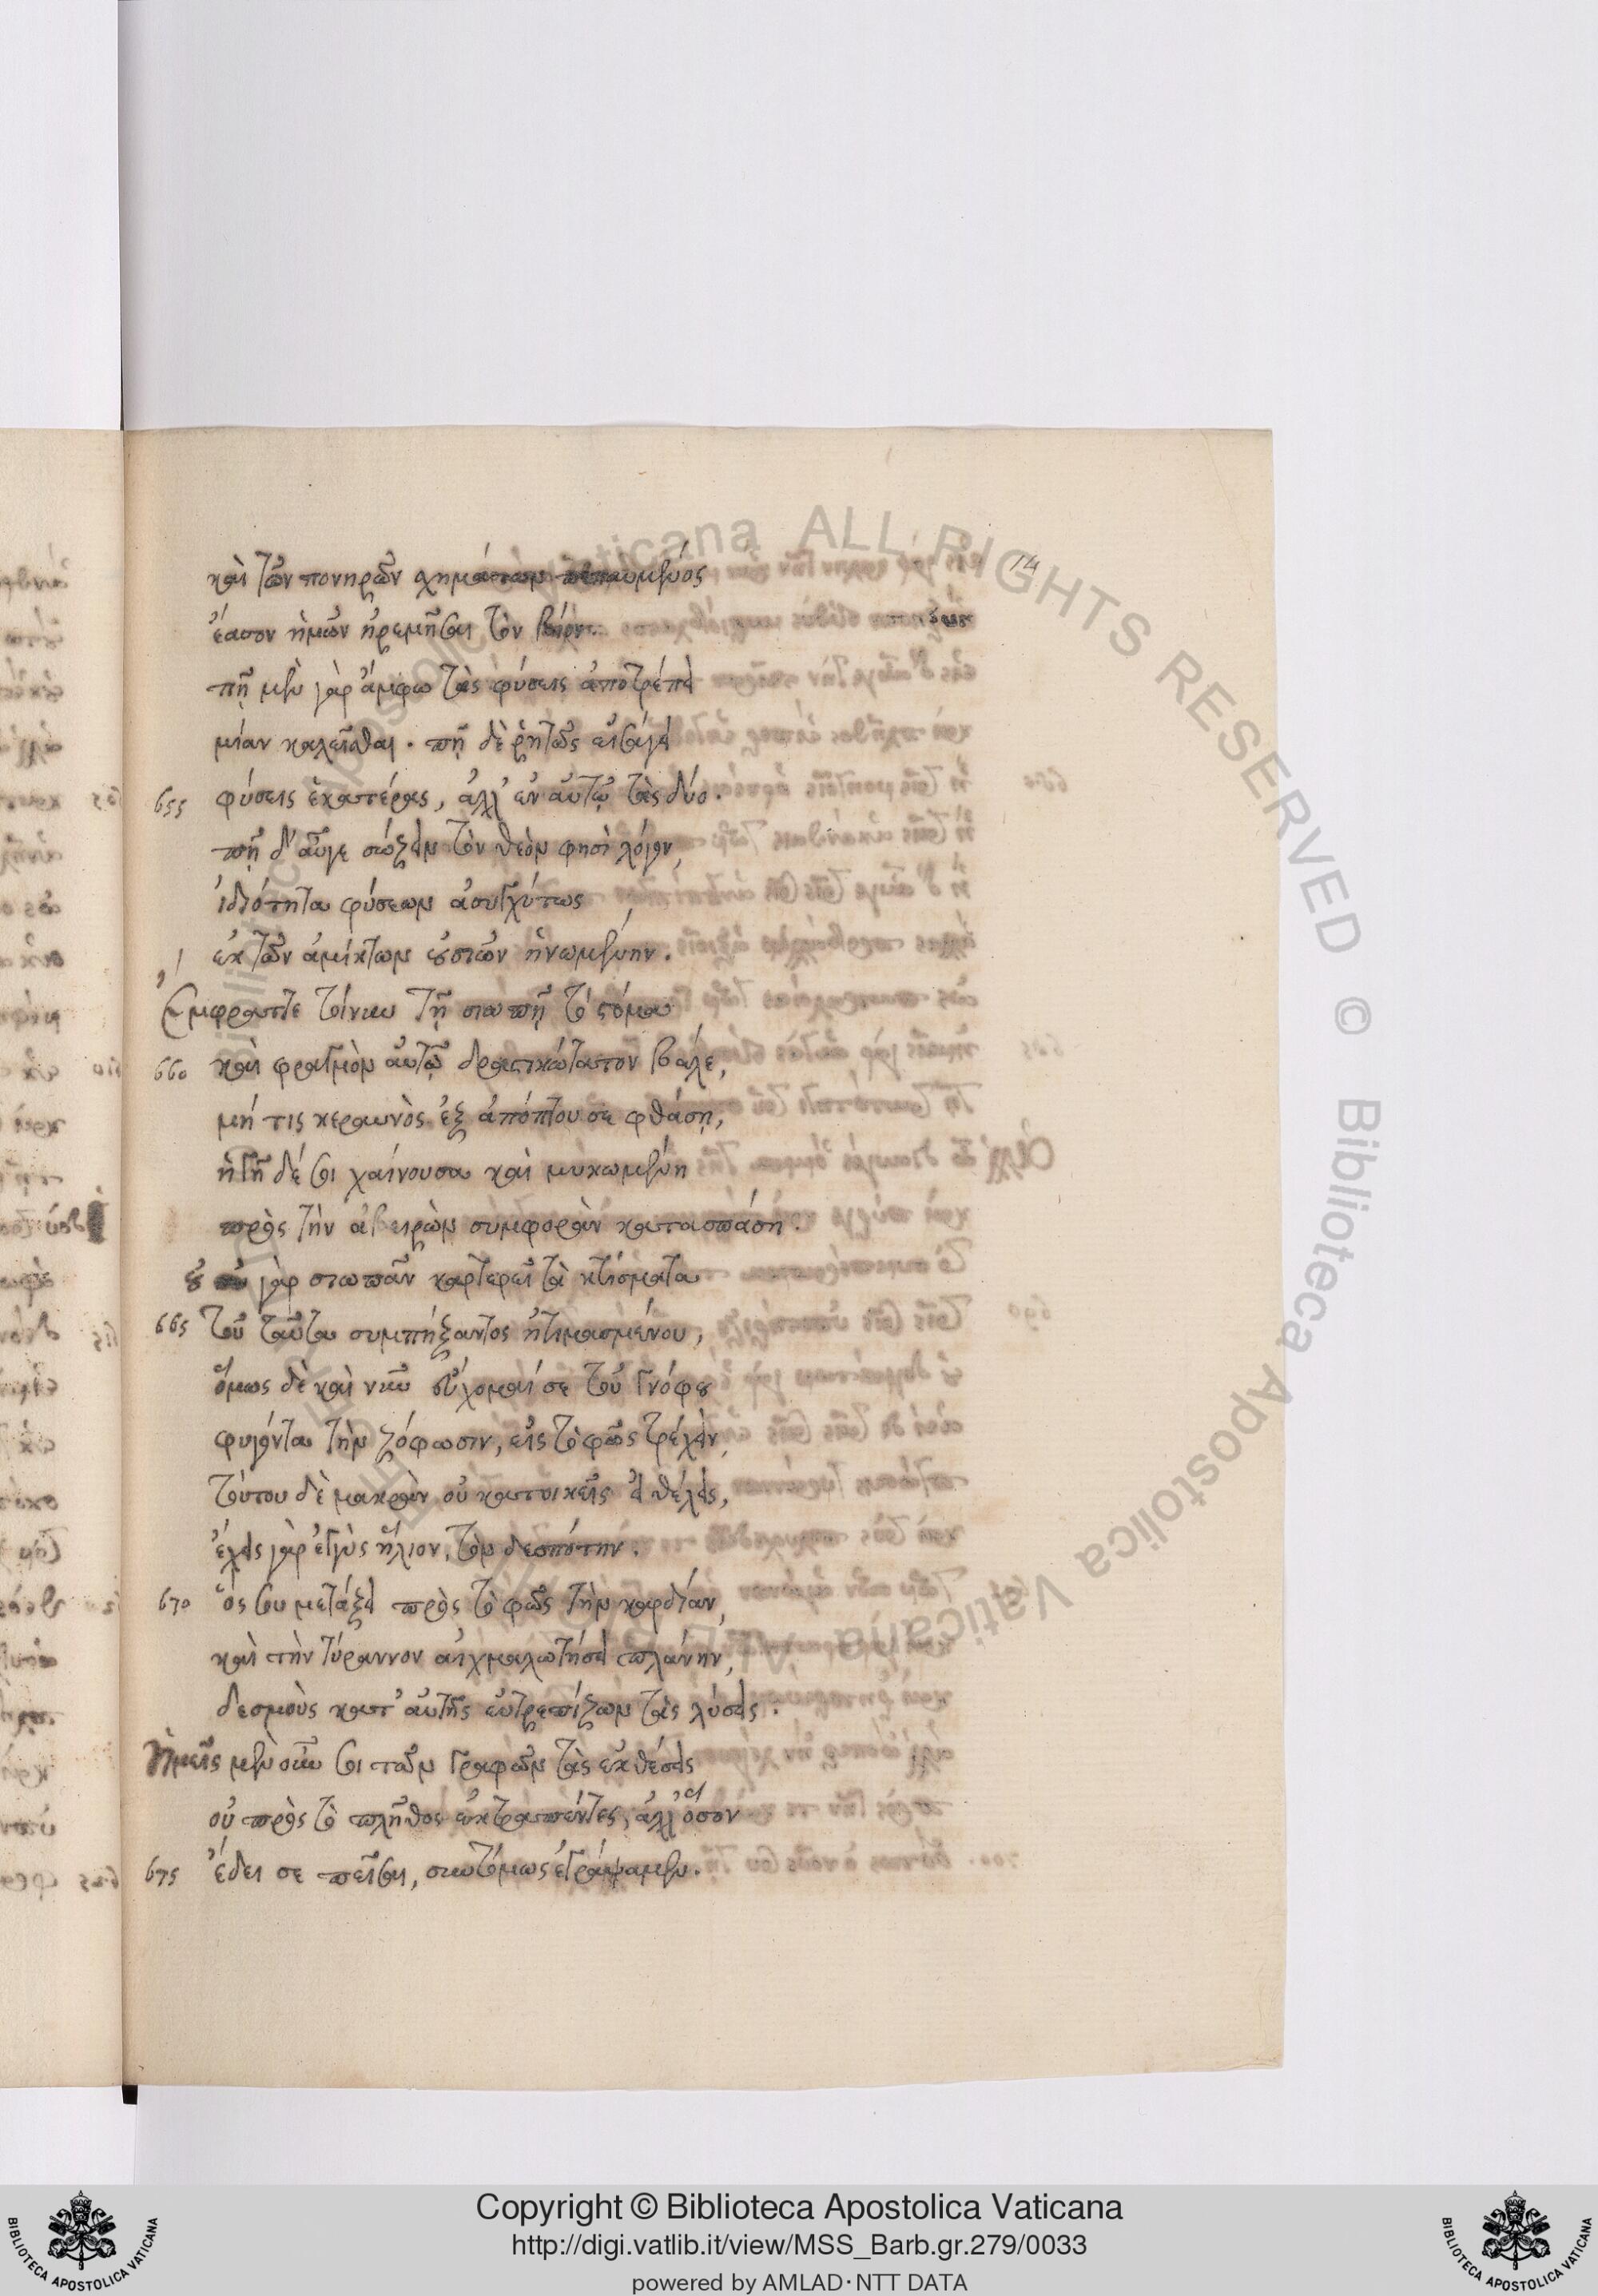 14
καὶ τῶν πονηρῶν χημάτων πεπαυμένος
ἔασον ἡμῶν ἠρεμῆσαι τὸν βίον.
πῇ μὲν γὰρ ἄμφω τὰς φύσεις ἀποτρέπει
μίαν καλεῖσθαι. πῇ δὲ ῥητῶς εἰσάγει
655 φύσεις ἑκατέρας, ἀλλ' ἐν αὐτῷ τὰς δύο.
πῇ δ' αὖγε σώζειν τὸν θεὸν φησὶ λόγον,
ἰδιότητα φύσεων ἀσυγχύτως
ἐκ τῶν ἀμίκτων οὐσιῶν ἡνωμένην.
Ἔμφραττε τοίνυν τῇ σιωπῇ τὸ στόμα
660 καὶ φραγμὸν αὐτῷ δραστικώτατον βάλε,
μή τις κεραυνὸς ἐξ ἀπόπτου σε φθάσῃ,
ἡ γῆ δέ σοι χαίνουσα καὶ μυκωμένη
πρὸς τὴν ἀβειρὼν συμφορὰν κατασπάσῃ.
οὐ γὰρ σιωπᾶν καρτερεῖ τὰ κτίσματα
665 τοῦ ταῦτα συμπήξαντος ἠτιμασμένου,
ὅμως δὲ καὶ νῦν εὔχομαί σε τοῦ γνόφου
φυγόντα τὴν ζόφωσιν, εἰς τὸ φῶς τρέχειν,
τούτου δὲ μακρὰν οὐ κατοικεῖς εἰ θέλεις,
ἔχεις γὰρ ἐγγὺς ἥλιον, τὸν δεσπότην.
670 ὅς σου μετάξει πρὸς τὸ φῶς τὴν καρδίαν,
καὶ τὴν τύραννον αἰχμαλωτήσει πλάνην,
δεσμοὺς κατ' αὐτῆς εὐτρεπίζων τὰς λύσεις.
Ἡμεῖς μὲν οὖν σοι τῶν γραφῶν τὰς ἐκθέσεις
οὐ πρὸς τὸ πλῆθος ἐκτραπέντες, ἀλλ' ὅσον
675 ἔδει σε πεῖσαι, συντόμως ἐγράψαμεν.
Copyright © Biblioteca Apostolica Vaticana
http://digi.vatlib.it/view/MSS_Barb.gr.279/0033
powered by AMLAD·NTT DATA